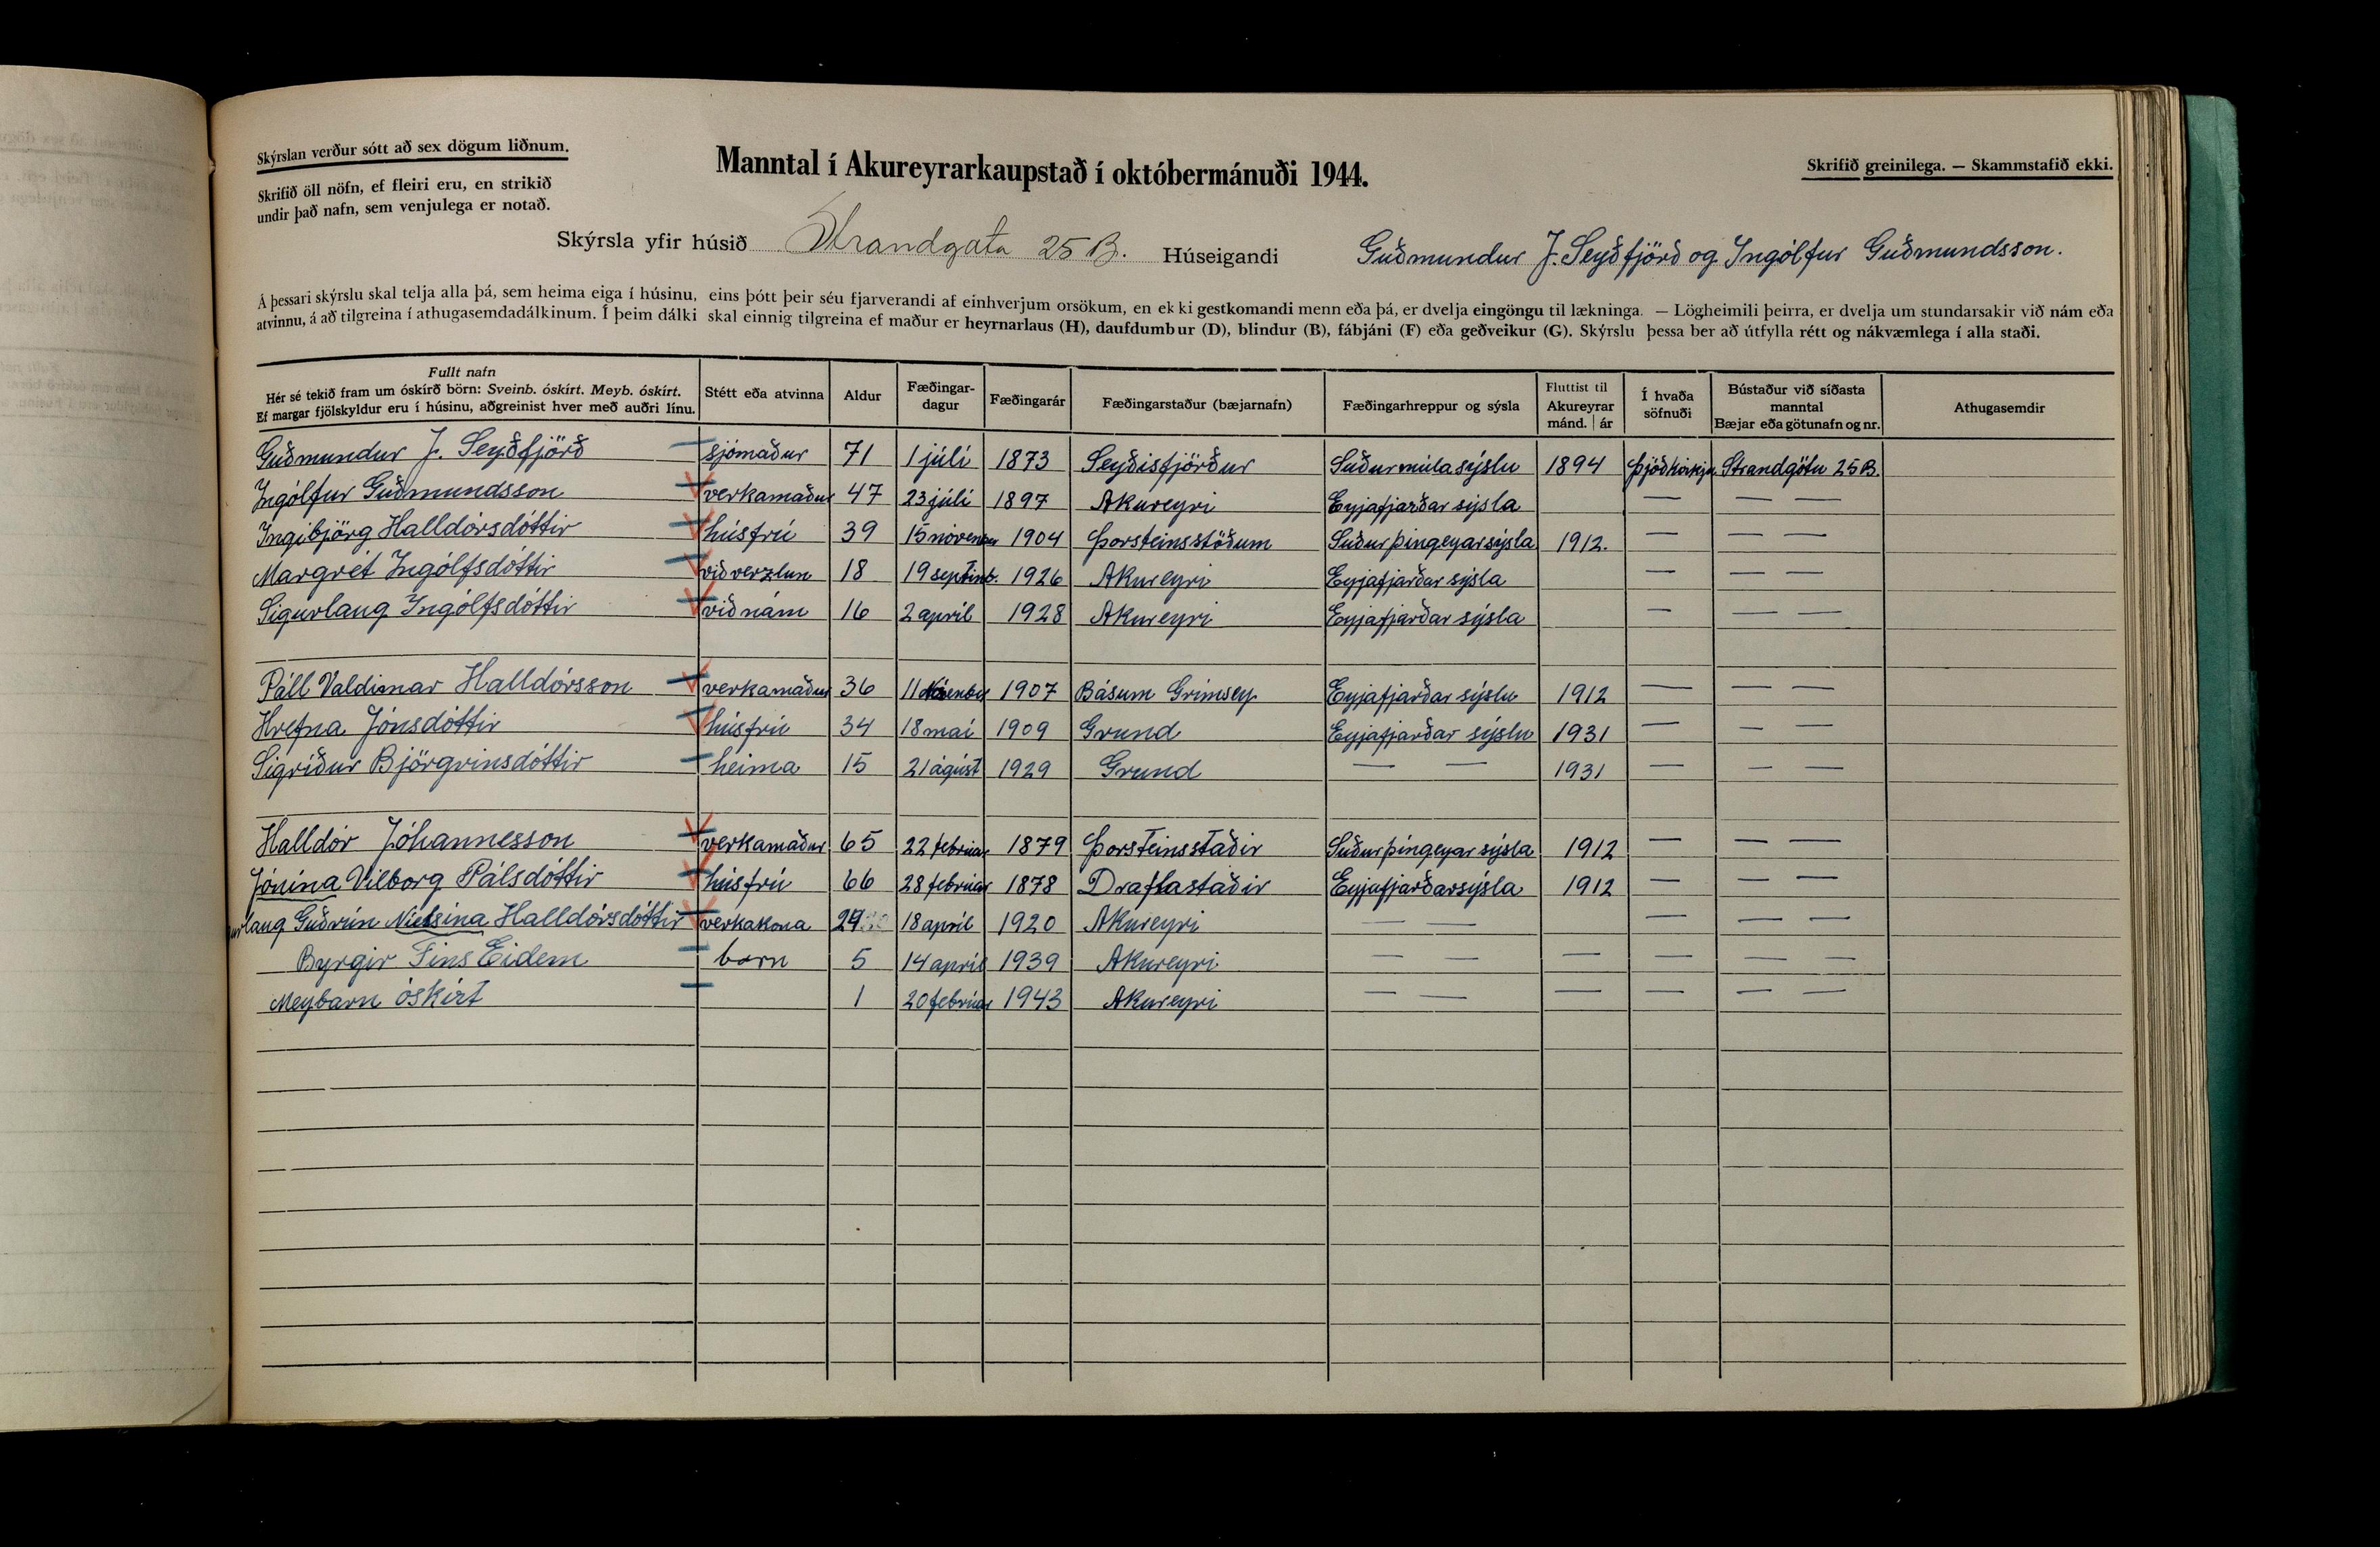 Skýrslan verður sótt að sex dögum liðnum.
Skrifið öll nöfn, ef fleiri eru, en strikið
undir það nafn, sem venjulega er notað.
Manntal í Akureyrarkaupstað í októbermánuði 1944.
Skrifið greinilega. — Skammstafið ekki.
Skýrsla yfir húsið Strandgata 25 B. Húseigandi Guðmundur J. Seyðfjörð og Ingólfur Guðmundsson.
Á þessari skýrslu skal telja alla þá, sem heima eiga í húsinu, eins þótt þeir séu fjarverandi af einhverjum orsökum, en ekki gestkomandi menn eða þá, er dvelja eingöngu til lækninga. — Lögheimili þeirra, er dvelja um stundarsakir við nám eða
atvinnu, á að tilgreina í athugasemdadálkinum. Í þeim dálki skal einnig tilgreina ef maður er heyrnarlaus (H), daufdumbur (D), blindur (B), fábjáni (F) eða geðveikur (G). Skýrslu þessa ber að útfylla rétt og nákvæmlega í alla staði.
Fullt nafn
Hér sé tekið fram um óskírð börn: Sveinb. óskírt. Meyb. óskírt.
Ef margar fjölskyldur eru í húsinu, aðgreinist hver með auðri línu.
Stétt eða atvinna
Aldur
Fæðingar-
dagur
Fæðingarár
Fæðingarstaður (bæjarnafn)
Fæðingarhreppur og sýsla
Fluttist til
Akureyrar
mánd. | ár
Í hvaða
söfnuði
Bústaður við síðasta
manntal
Bæjar eða götunafn og nr.
Athugasemdir
Guðmundur J. Seyðfjörð sjómaður 71 1 júlí 1873 Seyðisfjörður Suðurmúlasýslu 1894 Þjóðkirkju Strandgötu 25 B.
Ingólfur Guðmundsson verkamaður 47 23 júlí 1897 Akureyri Eyjafjarðar sýsla — — —
Ingibjörg Halldórsdóttir húsfrú 39 15 november 1904 Þorsteinsstöðum Suður þingeyarsýsla 1912. — — —
Margrét Ingólfsdóttir við verzlun 18 19 septemb. 1926 Akureyri Eyjafjarðar sýsla — — —
Sigurlaug Ingólfsdóttir við nám 16 2 apríl 1928 Akureyri Eyjafjarðar sýsla — — —
Páll Valdimar Halldórsson verkamaður 36 11 1907 Básum Grímsey Eyjafjarðar sýslu 1912 — — —
Hrefna Jónsdóttir húsfrú 34 18 maí 1909 Grund Eyjafjarðar sýslu 1931 — — —
Sigríður Björgvinsdóttir heima 15 21 ágúst 1929 Grund — — 1931 — — —
Halldór Jóhannesson verkamaður 65 22 februar 1879 Þorsteinsstaðir Suður þingeyar sýsla 1912 — — —
Jónína Vilborg Pálsdóttir húsfrú 66 28 februar 1878 Draflastaðir Eyjafjarðarsýsla 1912 — — —
urlaug Guðrún Nielsina Halldórsdóttir verkakona 24 18 apríl 1920 Akureyri — — — — —
Byrgir Fins Eidem barn 5 14 apríl 1939 Akureyri — — — — — —
Meybarn óskírt 1 20 februar 1943 Akureyri — — — — — —